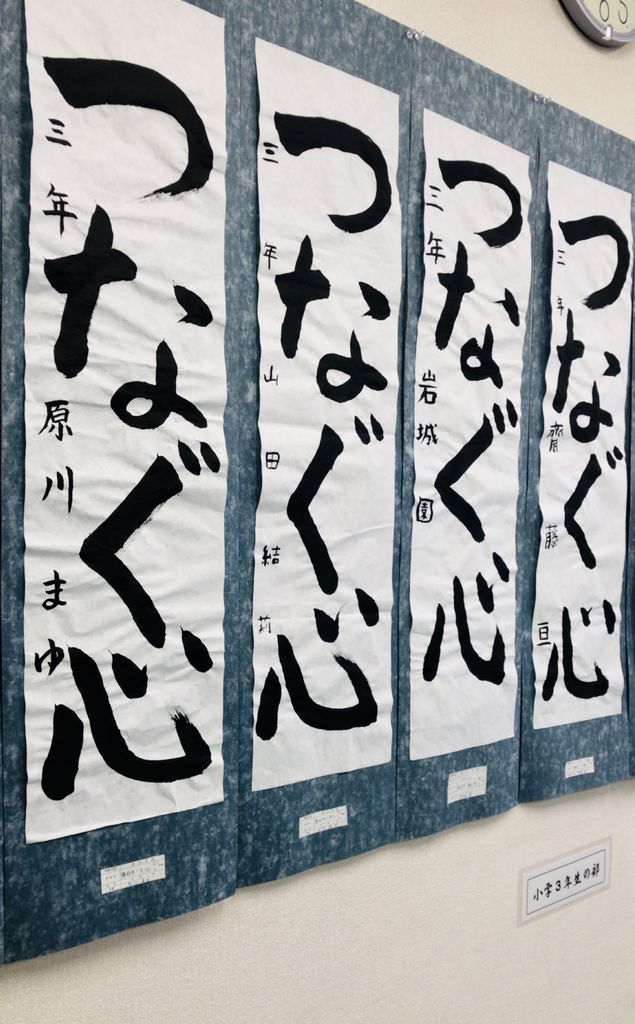 つなぐ心
三年 原川まゆ
つなぐ心
三年 山田結莉
つなぐ心
三年 岩城園
つなぐ心
三年 齋藤亘
小学3年生の部